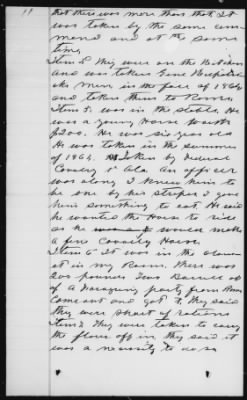 that there was more than that. It
was taken by the same com
mand and at the same
time,
Item 4 They were on the
and was taken Gene
men in the face of 1864
and taken them to Rome,
Item 5. was in the stable. He
was a young Horse worth
$200. He was six years old
He was taken in the summer
of 1864. Taken by Federal
Cavalry 1st Ala. An officer
was along I knew him to
be one by his stripes I gave
him something to eat. He said
he wanted the Horse to ride
as he would make
a fine Cavalry Horse.
Item 6 It was in the
at in my Room. There was
200 pounds Two Barrels
of A Foraging party from Rome
Come out and got it. They said
they were short of rations
Item 7 They were taken to carry
the flour off in they said it
was a necessity to do so